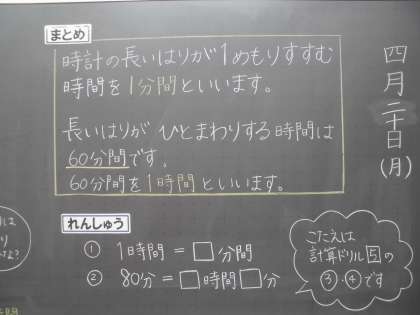 まとめ
時計の長いはりが1めもりすすむ
時間を1分間といいます。
長いはりが ひとまわりする時間は
60分間です。
60分間を1時間といいます。
四月二十日(月)
れんしゅう
① 1時間 = □分間
② 80分 = □時間□分
こたえは
計算ドリル5の
③・④です